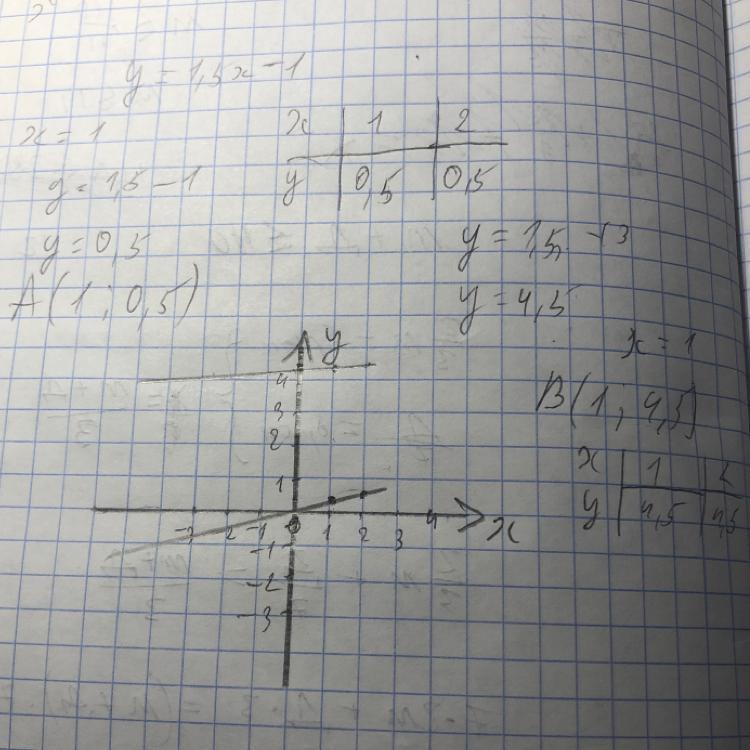 y = 1,5x - 1
x = 1
x 1 2
y = 1,5 - 1
y 0,5 0,5
y = 0,5
y = 1,5 + 3
A(1; 0,5)
y = 4,5
x = 1
B(1; 4,5)
x 1 2
y 4,5 4,5
y
4
3
2
1
-3 -2 -1 0 1 2 3 4 x
-1
-2
-3